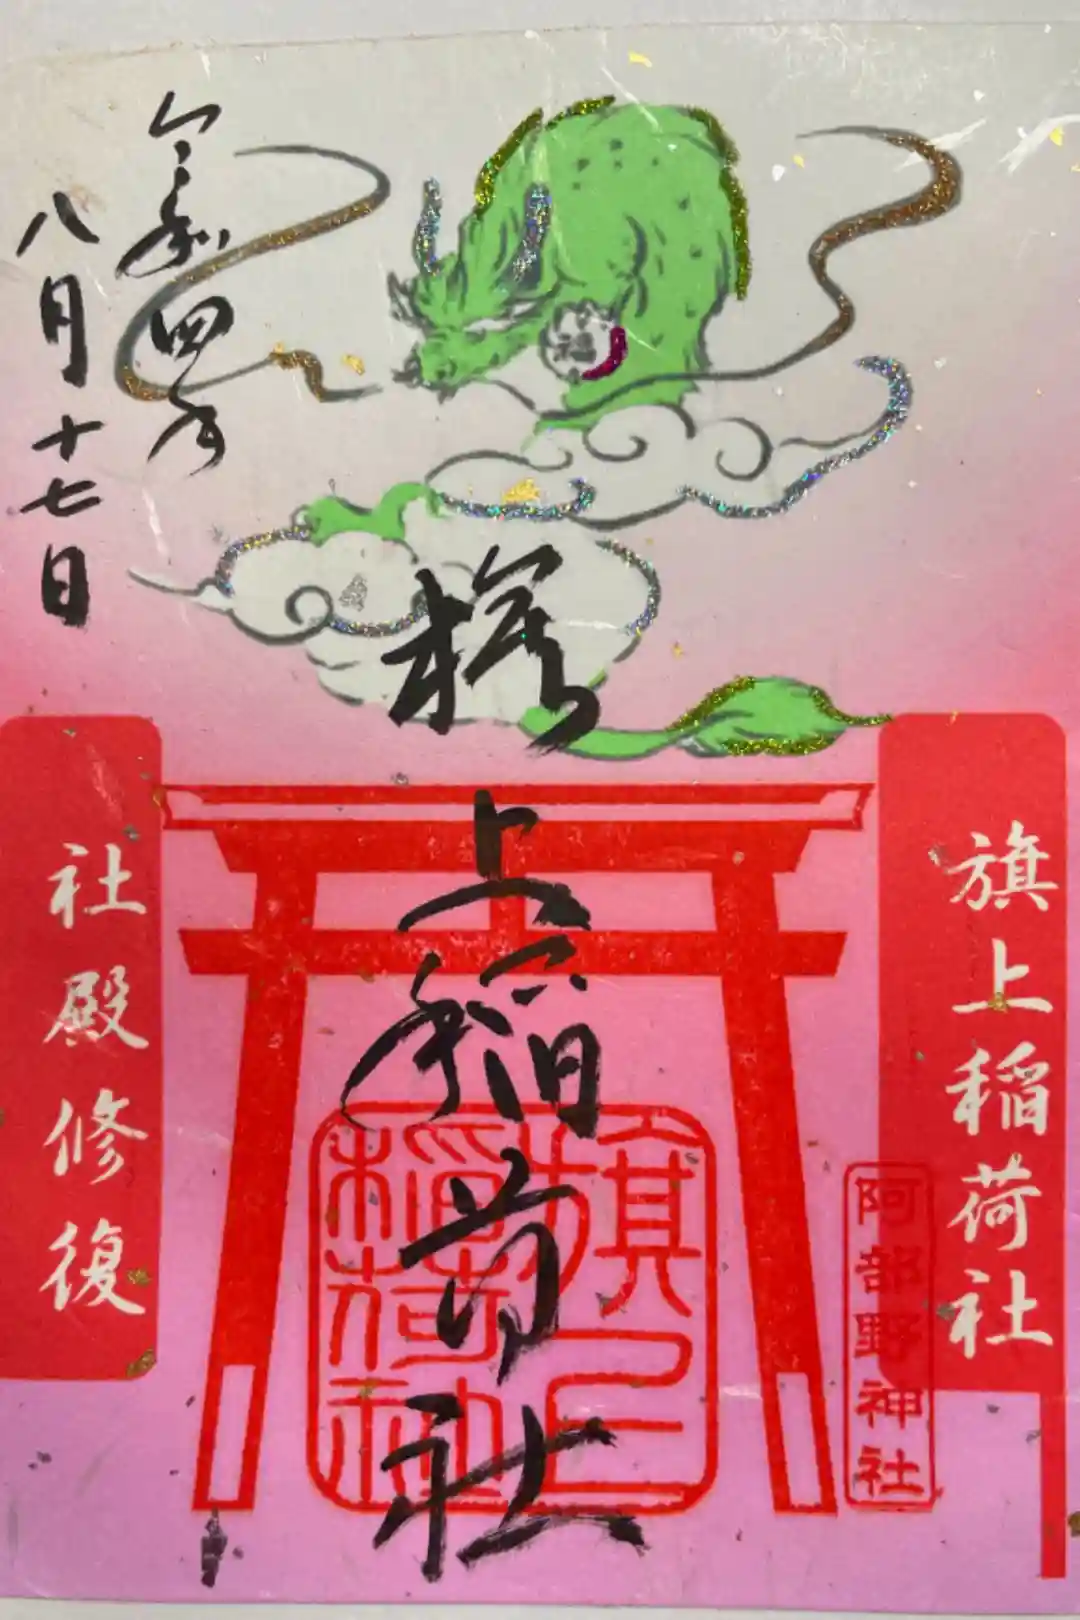 旗上稲荷社
阿部野神社
旗上稲荷社
旗上
稲荷社
福
社殿修復
令和四年
八月十七日